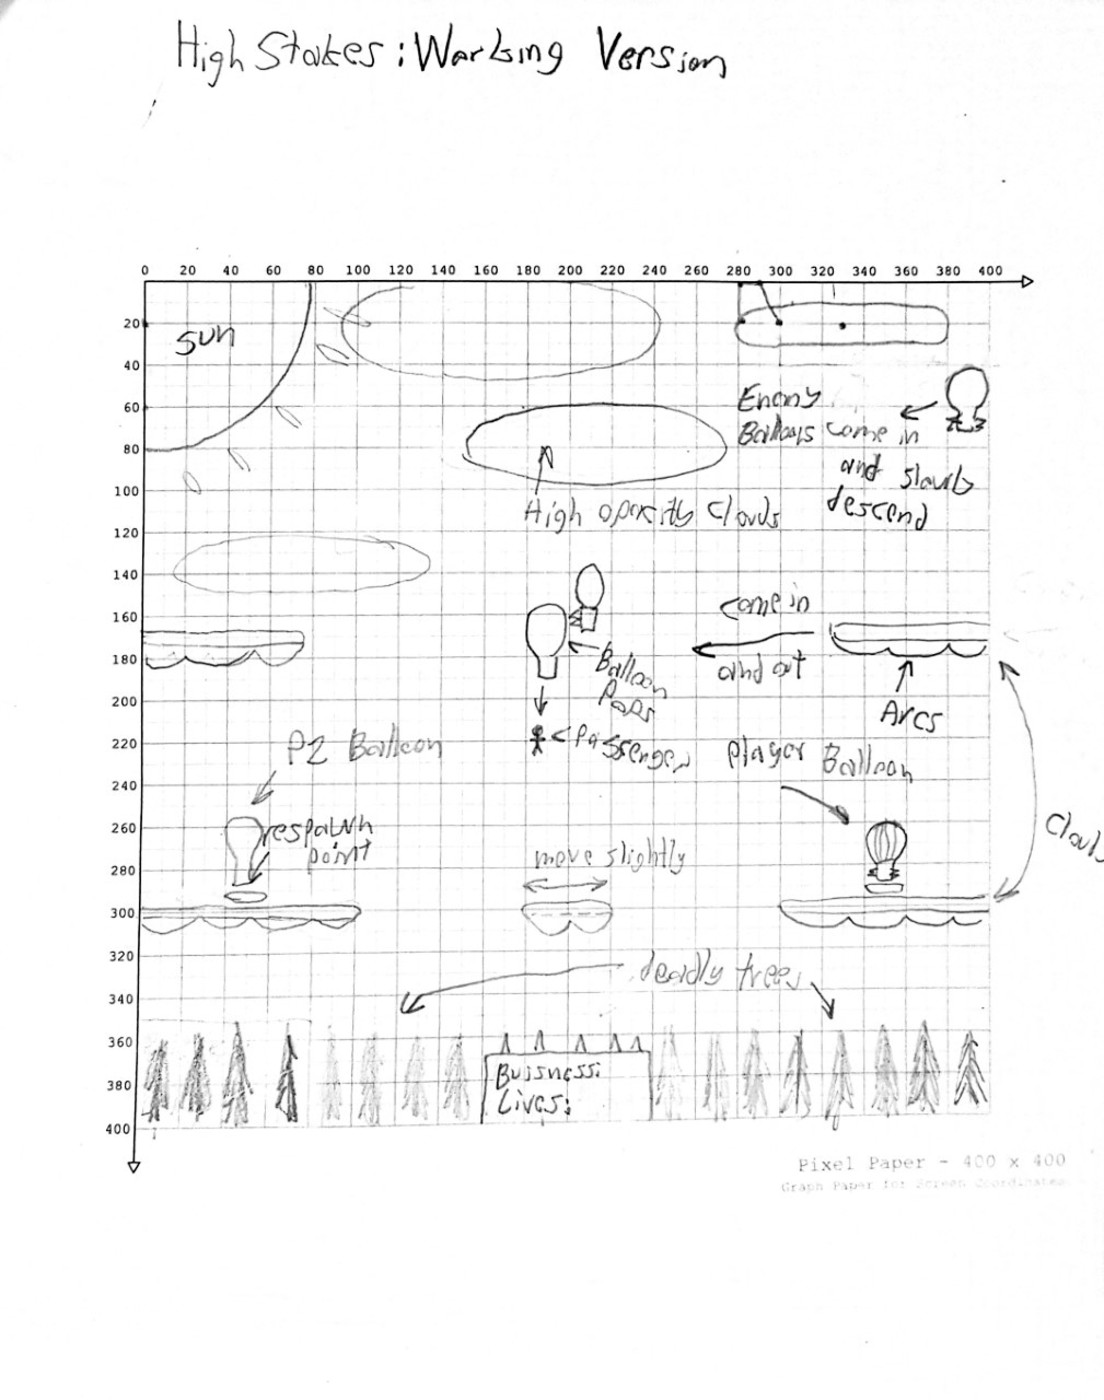 High Stakes: Working Version
0 20 40 60 80 100 120 140 160 180 200 220 240 260 280 300 320 340 360 380 400
20
40
60
80
100
120
140
160
180
200
220
240
260
280
300
320
340
360
380
400
Sun
Enemy
Balloons come in
and slowly
descend
High opacity Clouds
come in
and out
Balloon
Pops
Arcs
Passenger
P2 Balloon
Player Balloon
respawn
point
move slightly
Clouds
deadly trees
Buisness:
Lives:
Pixel Paper - 400 x 400
Graph Paper for Screen Coordinates